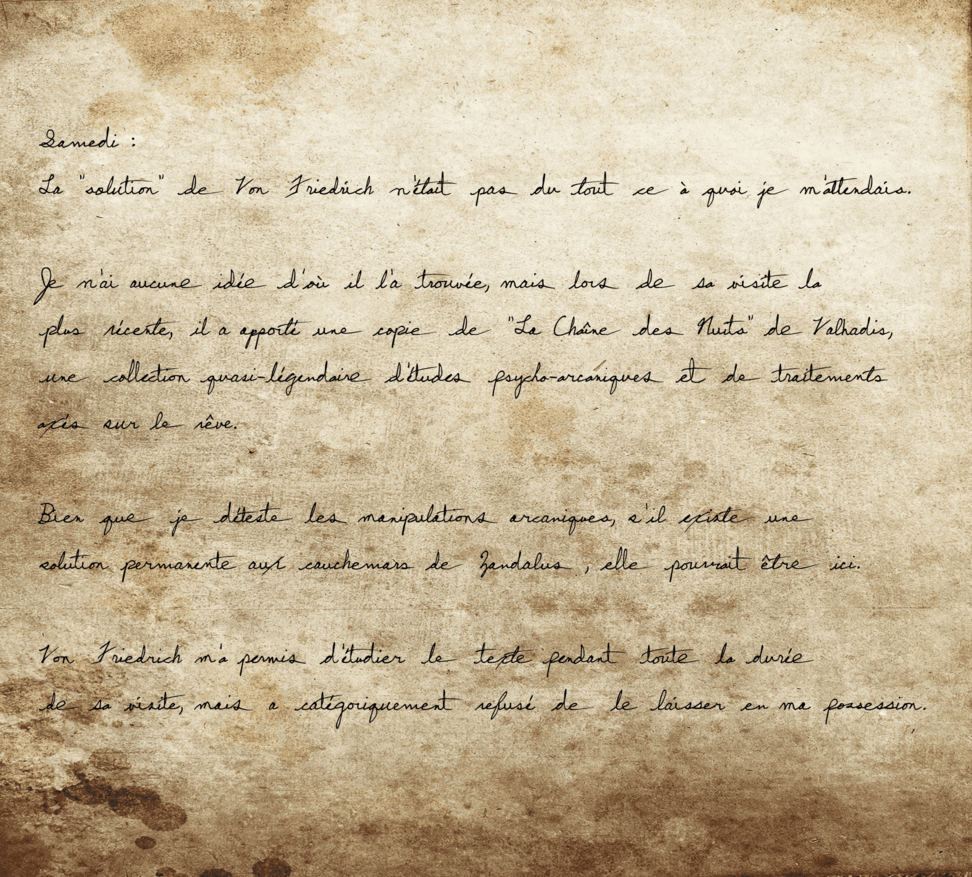 Samedi :
La "solution" de Von Friedrich n'était pas du tout ce à quoi je m'attendais.
Je n'ai aucune idée d'où il l'a trouvée, mais lors de sa visite la
plus récente, il a apporté une copie de "La Chaîne des Nuits" de Valhadis,
une collection quasi-légendaire d'études psycho-arcaniques et de traitements
axés sur le rêve.
Bien que je déteste les manipulations arcaniques, s'il existe une
solution permanente aux cauchemars de Zandalus , elle pourrait être ici.
Von Friedrich m'a permis d'étudier le texte pendant toute la durée
de sa visite, mais a catégoriquement refusé de le laisser en ma possession.